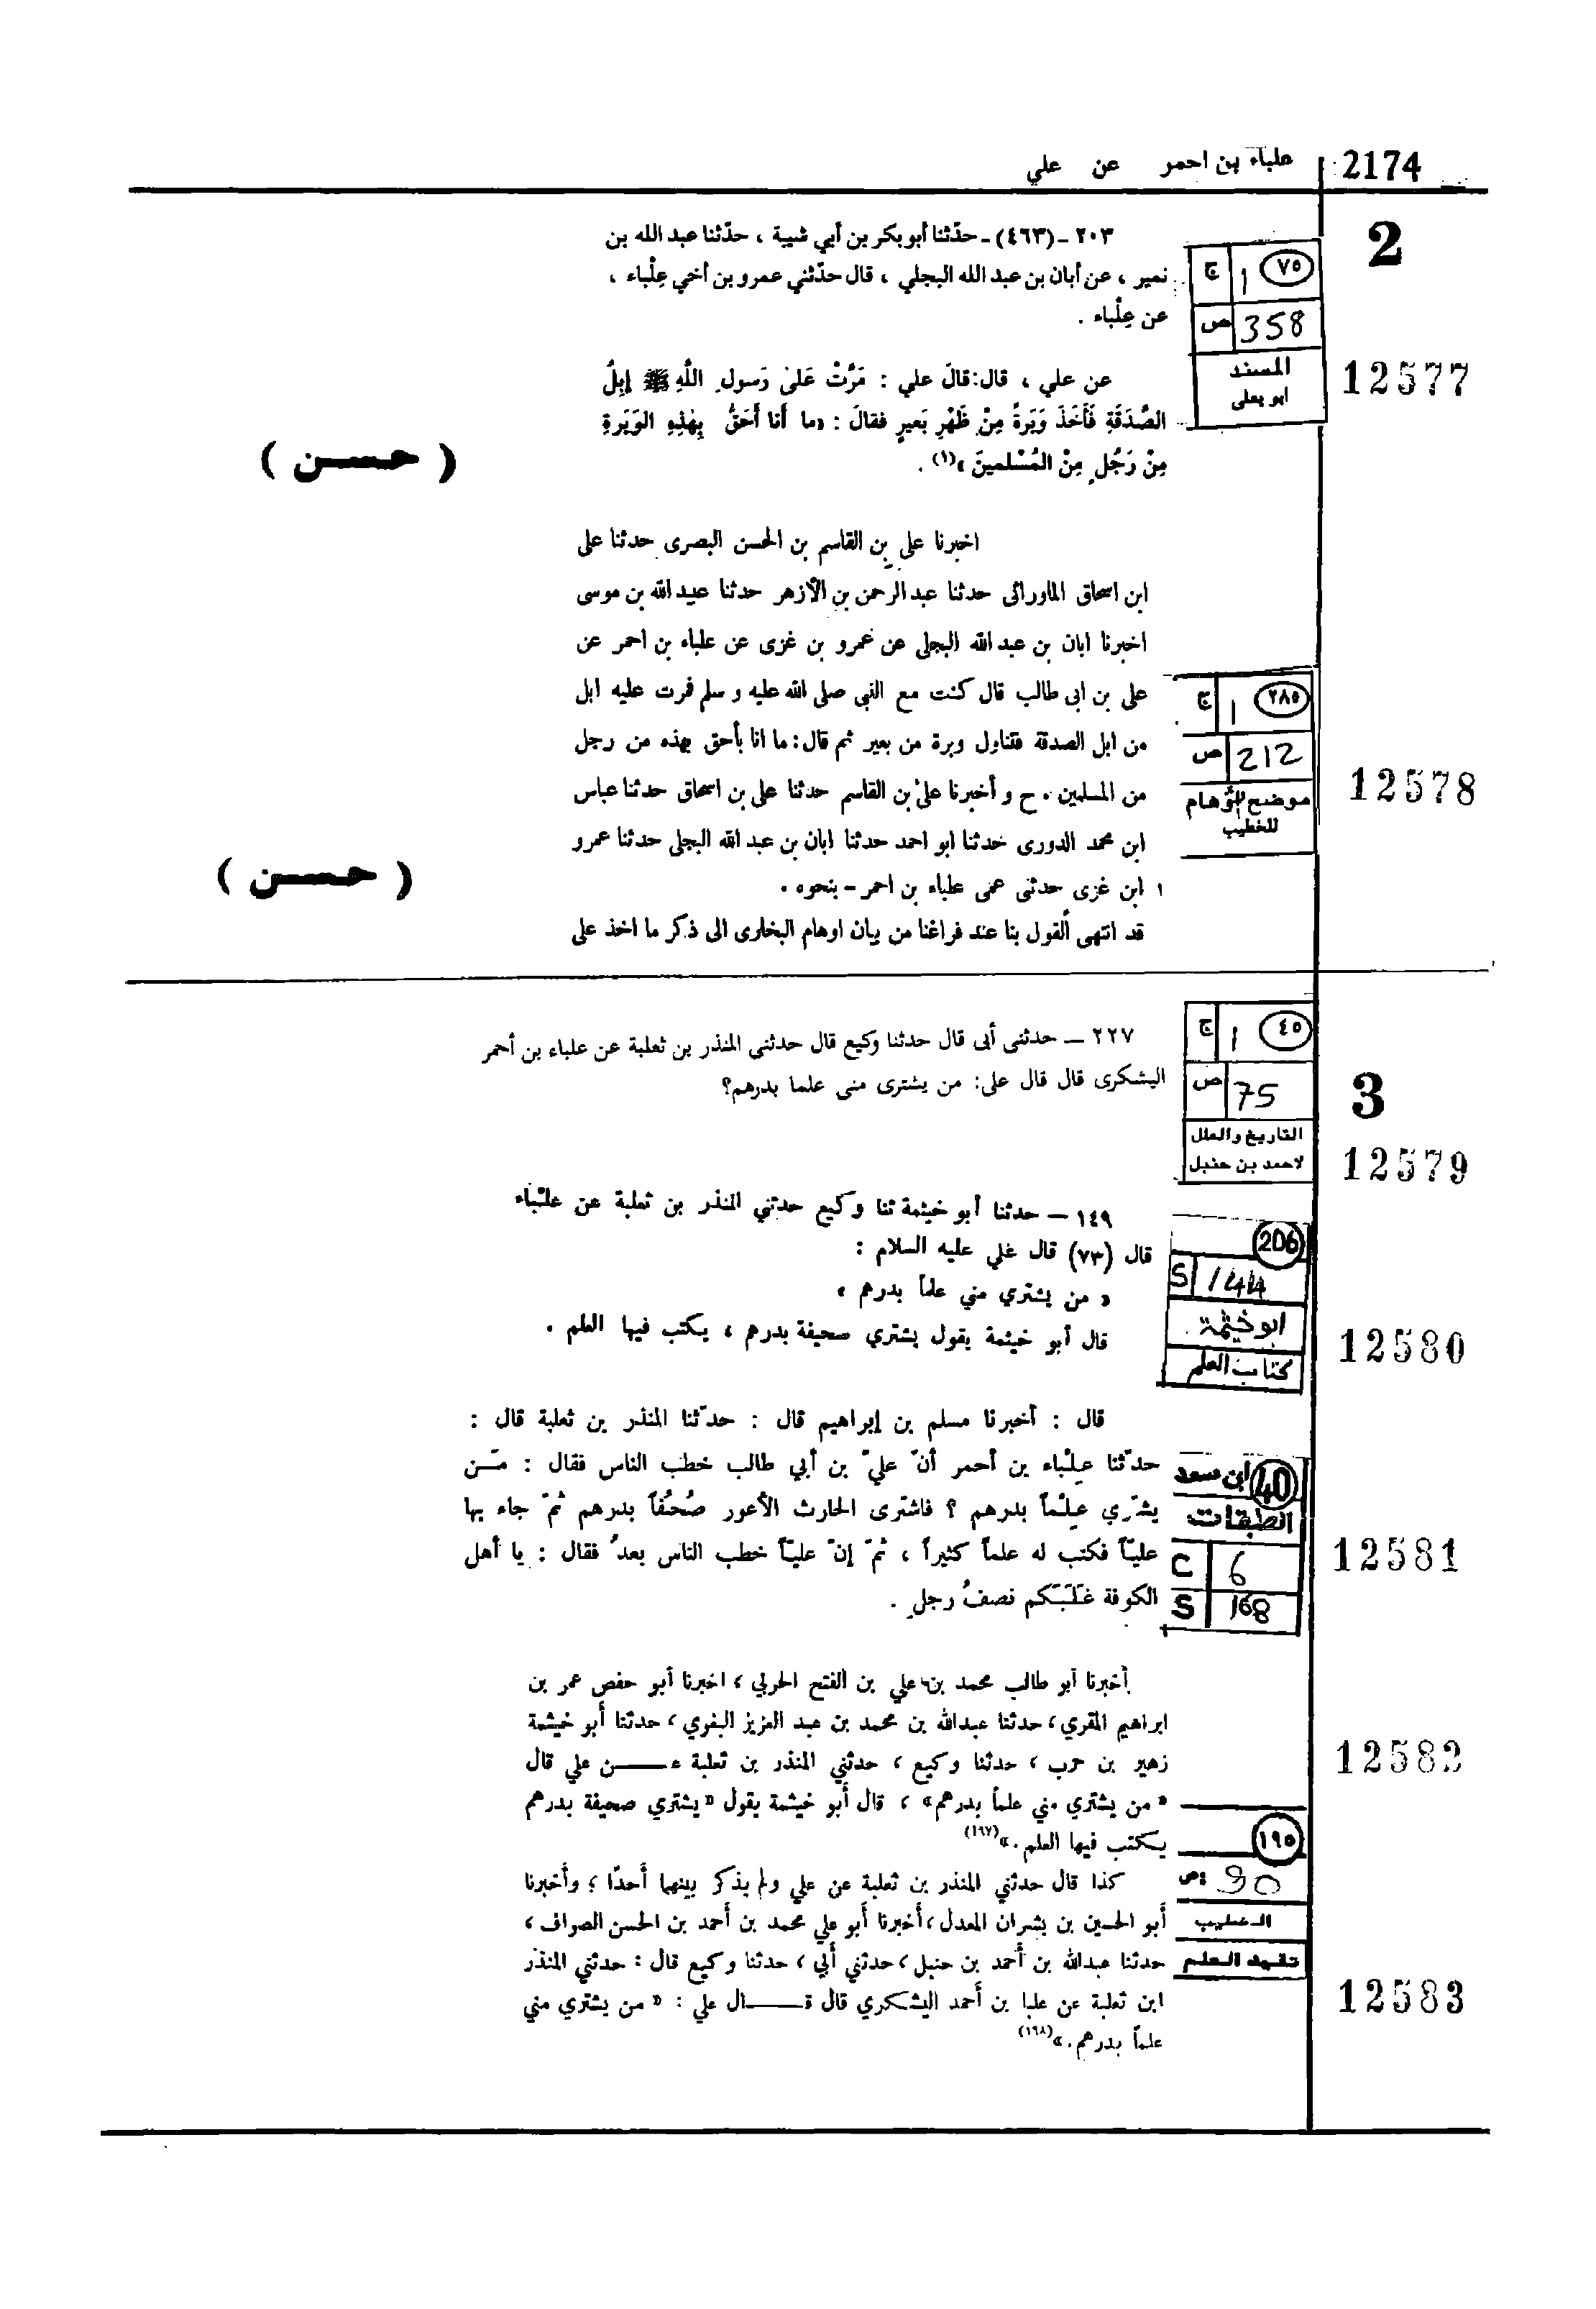 2174
علباء بن احمر    عن    علي
2
٢٠٣ - (٤٦٣) - حدّثنا أبو بكر بن أبي شيبة ، حدّثنا عبد الله بن
نمير ، عن أبان بن عبد الله البجلي ، قال حدّثني عمرو بن أخي عِلْباء ،
عن عِلْباء .
ج ١ ٧٥
ص 358
المسند
ابو يعلى
12577
عن علي ، قال: قالَ علي : مَرَّتْ عَلىٰ رَسولِ اللَّهِ ﷺ إبِلُ
الصَّدَقَةِ فَأَخَذَ وَبَرةً مِنْ ظَهْرِ بَعيرٍ فقالَ : «ما أَنا أَحَقُّ بِهٰذِهِ الوَبَرةِ
مِنْ رَجُلٍ مِنْ المُسْلمينَ »(١) .
( حسن )
اخبرنا على بن القاسم بن الحسن البصرى حدثنا على
ابن اسحاق المادرائى حدثنا عبد الرحمن بن الأزهر حدثنا عبيد الله بن موسى
اخبرنا ابان بن عبد الله البجلى عن عمرو بن غزى عن علباء بن احمر عن
على بن ابى طالب قال كنت مع النبى صلى الله عليه و سلم فمرت عليه ابل
من ابل الصدقة فتناول وبرة من بعير ثم قال: ما انا بأحق بهذه من رجل
من المسلمين . ح و أخبرنا على بن القاسم حدثنا على بن اسحاق حدثنا عباس
ابن محمد الدورى حدثنا ابو احمد حدثنا ابان بن عبد الله البجلى حدثنا عمرو
١ ابن غزى حدثنى عمى علباء بن احمر – بنحوه .
قد انتهى القول بنا عند فراغنا من بيان اوهام البخارى الى ذكر ما اخذ على
ج ١ ٢٨٥
ص 212
موضح الأوهام
للخطيب
12578
( حسن )
3
٢٢٧ – حدثنى أبى قال حدثنا وكيع قال حدثنى المنذر بن ثعلبة عن علباء بن أحمر
اليشكرى قال قال على: من يشترى منى علما بدرهم؟
ج ١ ٤٥
ص 75
التاريخ والعلل
لاحمد بن حنبل
12579
١٤٩ – حدثنا أبو خيثمة ثنا وكيع حدثني المنذر بن ثعلبة عن علْباء
قال (٧٣) قال علي عليه السلام :
« من يشتري مني علماً بدرهم »
قال أبو خيثمة يقول يشتري صحيفة بدرهم ، يكتب فيها العلم .
206
S 144
ابو خثيمة
كتاب العلم
12580
قال : أخبرنا مسلم بن إبراهيم قال : حدّثنا المنذر بن ثعلبة قال :
حدّثنا عِلْباء بن أحمر أنّ عليّ بن أبي طالب خطب الناس فقال : مَن
يشتَري عِلْماً بدرهم ؟ فاشترى الحارث الأعور صُحُفاً بدرهم ثمّ جاء بها
عليّاً فكتب له علماً كثيراً ، ثمّ إنّ عليّاً خطب الناس بعدُ فقال : يا أهل
الكوفة غَلَبَكم نصفُ رجلٍ .
40 ابن سعد
الطبقات
C 6
S 168
12581
أخبرنا أبو طالب محمد بن علي بن الفتح الحربي ، اخبرنا أبو حفص عمر بن
ابراهيم المقري ، حدثنا عبدالله بن محمد بن عبد العزيز البغوي ، حدثنا أبو خيثمة
زهير بن حرب ، حدثنا وكيع ، حدثني المنذر بن ثعلبة عـــن علي قال
« من يشتري مني علماً بدرهم» ، قال أبو خيثمة يقول « يشتري صحيفة بدرهم
يكتب فيها العلم .»(١٦٧)
12582
كذا قال حدثني المنذر بن ثعلبة عن علي ولم يذكر بينهما أحدًا ؛ وأخبرنا
أبو الحسين بن بشران المعدل ، أخبرنا أبو علي محمد بن أحمد بن الحسن الصواف ،
حدثنا عبدالله بن أحمد بن حنبل ، حدثني أبي ، حدثنا وكيع قال : حدثني المنذر
ابن ثعلبة عن علبا بن أحمد اليشكري قال قـــال علي : « من يشتري مني
علماً بدرهم .»(١٦٨)
١٩٥
ص 90
الخطيب
تقييد العلم
12583